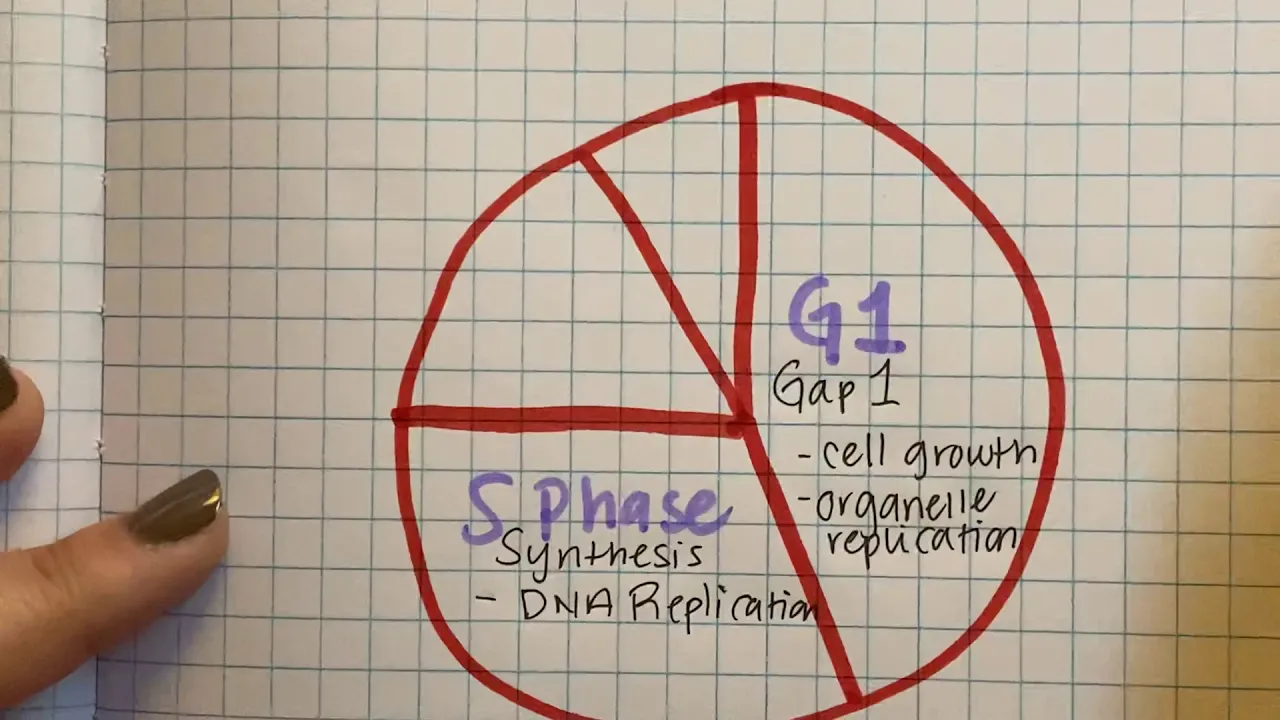 G1
Gap 1
- cell growth
- organelle
replication
S Phase
Synthesis
- DNA Replication